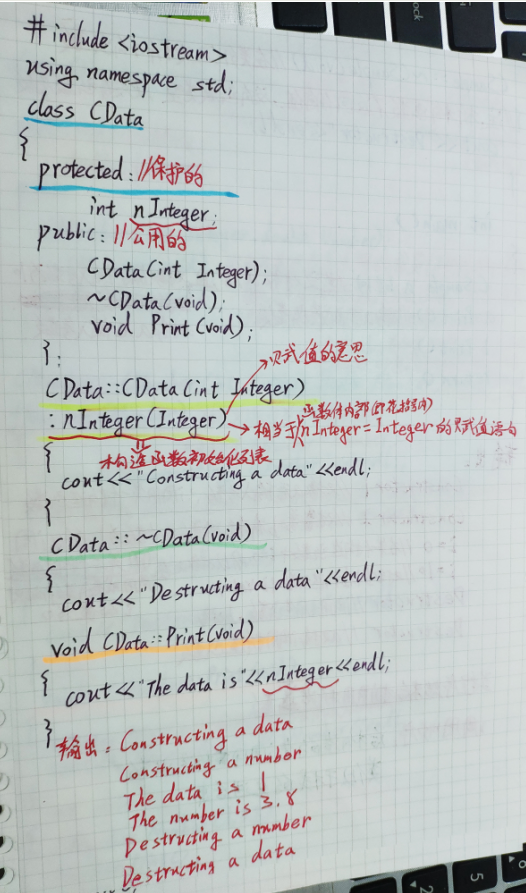 #include <iostream>
using namespace std;
class CData
{
protected: //保护的
int nInteger;
public: //公用的
CData(int Integer);
~CData(void);
void Print(void);
};
赋值的意思
CData::CData(int Integer)
函数体内部(即花括号内)
:nInteger(Integer) → 相当于nInteger=Integer的赋值语句
构造函数初始化列表
{
cout<<"Constructing a data"<<endl;
}
CData::~CData(void)
{
cout<<"Destructing a data"<<endl;
}
void CData::Print(void)
{
cout<<"The data is"<<nInteger<<endl;
}
输出: Constructing a data
Constructing a number
The data is 1
The number is 3.8
Destructing a number
Destructing a data